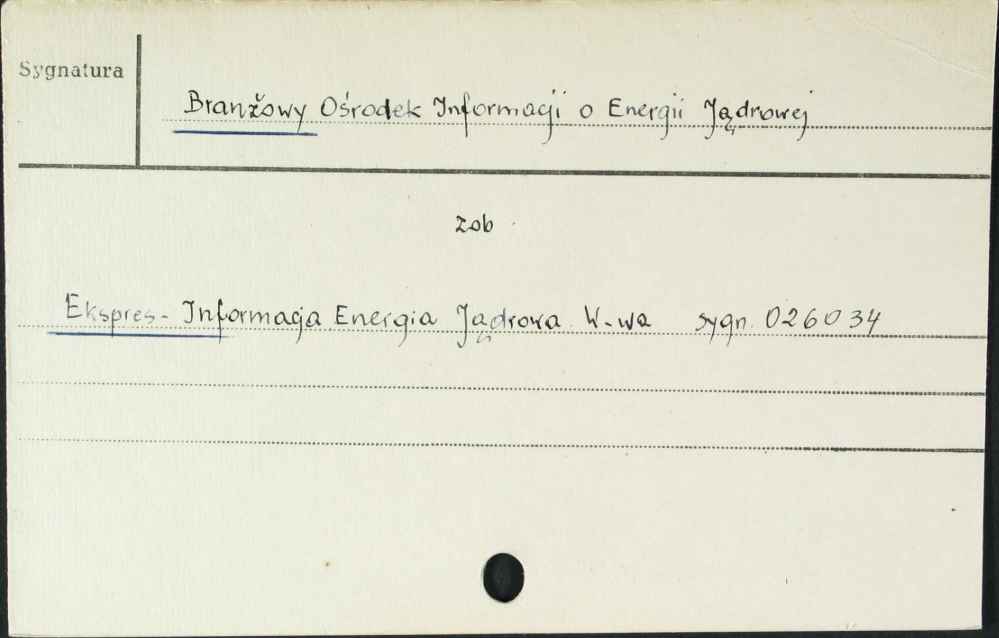 Sygnatura
Branżowy Ośrodek Informacji o Energii Jądrowej
zob.
Ekspres-Informacja Energia Jądrowa W-wa sygn. 026034